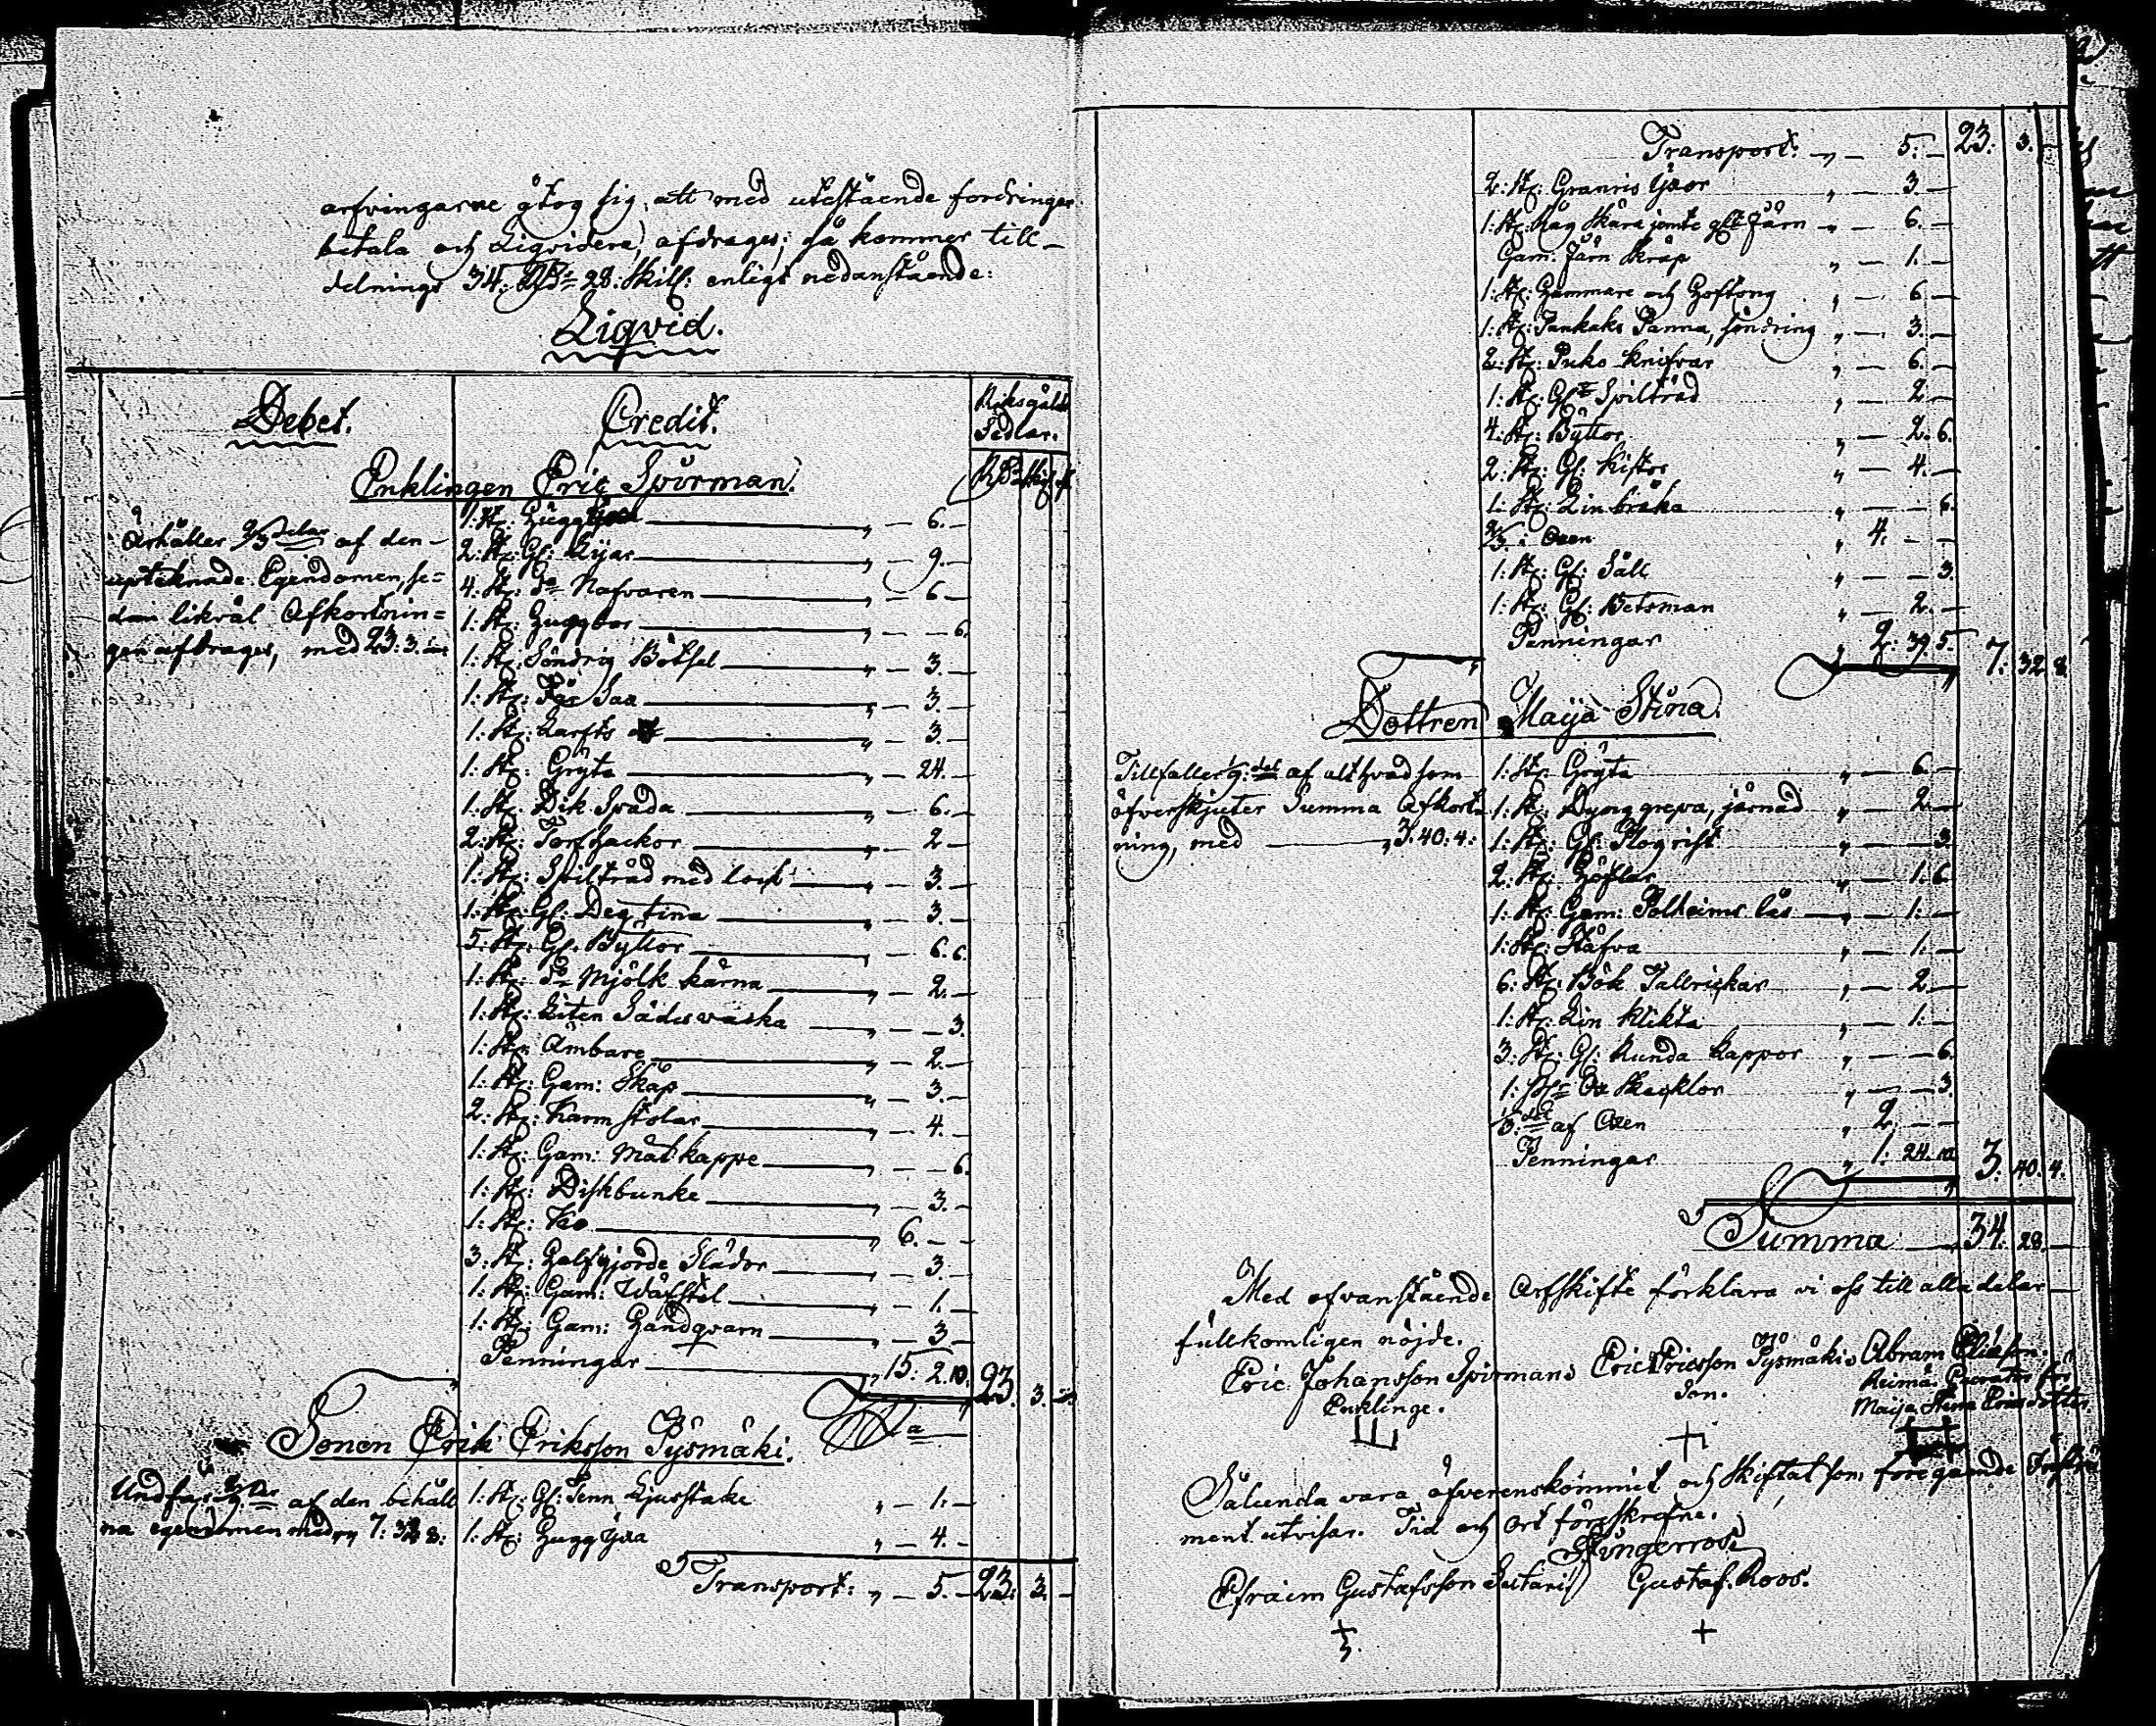 arfvingarne åtog sig, att med utestående fordringar
betala och Liqvidera, afdrages; så kommer till-
delnings 34. RD 28. Skill: enligt nedanstående:
Liqvid.
Debet. Credit. Riksgälds Sedlar.
Enklingen Eric Spörman. RD Skill
Erhåller 2/3 delar af den
upteknade Egendomen, se=
dan likväl Afkortnin=
gen afdrages, med 23. 3.
1: st: Hugg Yxa „ — 6. —
2: st: Gl: Lijar „ — 9. —
4: st: Do Nafvaren „ — 6 —
1: st: Huggbor „ — — 6.
1: st: Söndrig Betsel „ — 3. —
1: st: Får Sax „ — 3. —
1: st: Harfts „ — 3. —
1: st: Gryta „ — 24. —
1: st: Dik Spada „ — 6. —
2: st: Torf hackor „ — 2 —
1: st: Spilkråd med lock „ — 3. —
1: st: Gl: Deg tina „ — 3. —
5: st: Gl: Byttor „ — 6. 6.
1: st: Do Mjölk kärna „ — 2. —
1: st: Liten Sädesvaska „ — — 3.
1: st: Ämbare „ — 2. —
1: st: Gam: Skåp „ — 3. —
2: st: Karm stolar „ — 4. —
1: st: Gam: Mat kappe „ — — 6.
1: st: Diskbunke „ — 3. —
1: st: Ko „ 6. — —
3: st: Halfgjorde Slädor „ — 3. —
1: st: Gam: Wäfstol „ — 1. —
1: st: Gam: Handqvarn „ — 3 —
Penningar „ 15. 2. 10. 23. 3. —
Sonen Erik Eriksson Pysmäki.
Undfår 2/9 delar af den behåll
na egendomen med „ 7: 32 8.
1: st: Gl: Tenn Ljusstake „ — 1. —
1: st: Hugg Yxa „ — 4. —
Transport: „ — 5. — 23. 3. —
Transport: „ — 5. — 23. 3. —
2: st: Granris Yxor „ — 3 —
1: st: Råg Skära jemte glt Järn „ — 6. —
Gam: Järn Skråp „ — 1. —
1: st: Hammare och Hoftong „ — 6 —
1: st: Pankaks Panna, söndrig „ — 3. —
2: st: Puko knifvar „ — 6. —
1: st: Glt Spilkråd „ — 2 —
4: st: Byttor „ — 2. 6.
2: st: Gl: Kistor „ — 4. —
1: st: Linbråka „ — — 6.
2/3 i Oxen „ 4. — —
1: st: Gl: Såll „ — — 3.
1: st: Gl: Betsman „ — 2. —
Penningar „ 2. 39. 5. 7. 32 8.
Dottren Maija Stina.
Tillfaller 1/9: del af alt hvad som
öfverskjuter Summa Afkort=
ning, med „ 3. 40. 4:
1: st: Gryta „ — 6. —
1: st: Dyng grepa, järnad „ — 2. —
1: st: Gl: Plogrist „ — — 3
2: st: Höflar „ — 1. 6.
1: st: Gam: Polheims lås „ — 1. —
1: st: Stäfva „ — 1. —
6: st: Bök Tallrickar „ — 2 —
1: st: Lin Klikta „ — 1. —
3: st: Gl: Runda kappor „ — — 6.
1: Ox Skacklor „ — — 3.
1/3: del af Oxen „ 2. — —
Penningar „ 1. 24. 10. 3. 40. 4.
Summa 34. 28. —
Med ofvanstående Arfskifte förklara vi oss till alla delar
fullkomligen nöjde.
Eric Johansson Spörmans Eric Ericsson Pysmäkis Abram Eliasson
Enklinge. Son. Reimä. Curator för
Maija Stina Ericsdotter.
Sålunda vara öfverenskommit och Skiftat som föregående
ment utvisar. Tid och ort förrskrefne.
Efraim Gustafsson Gustaf Roos.